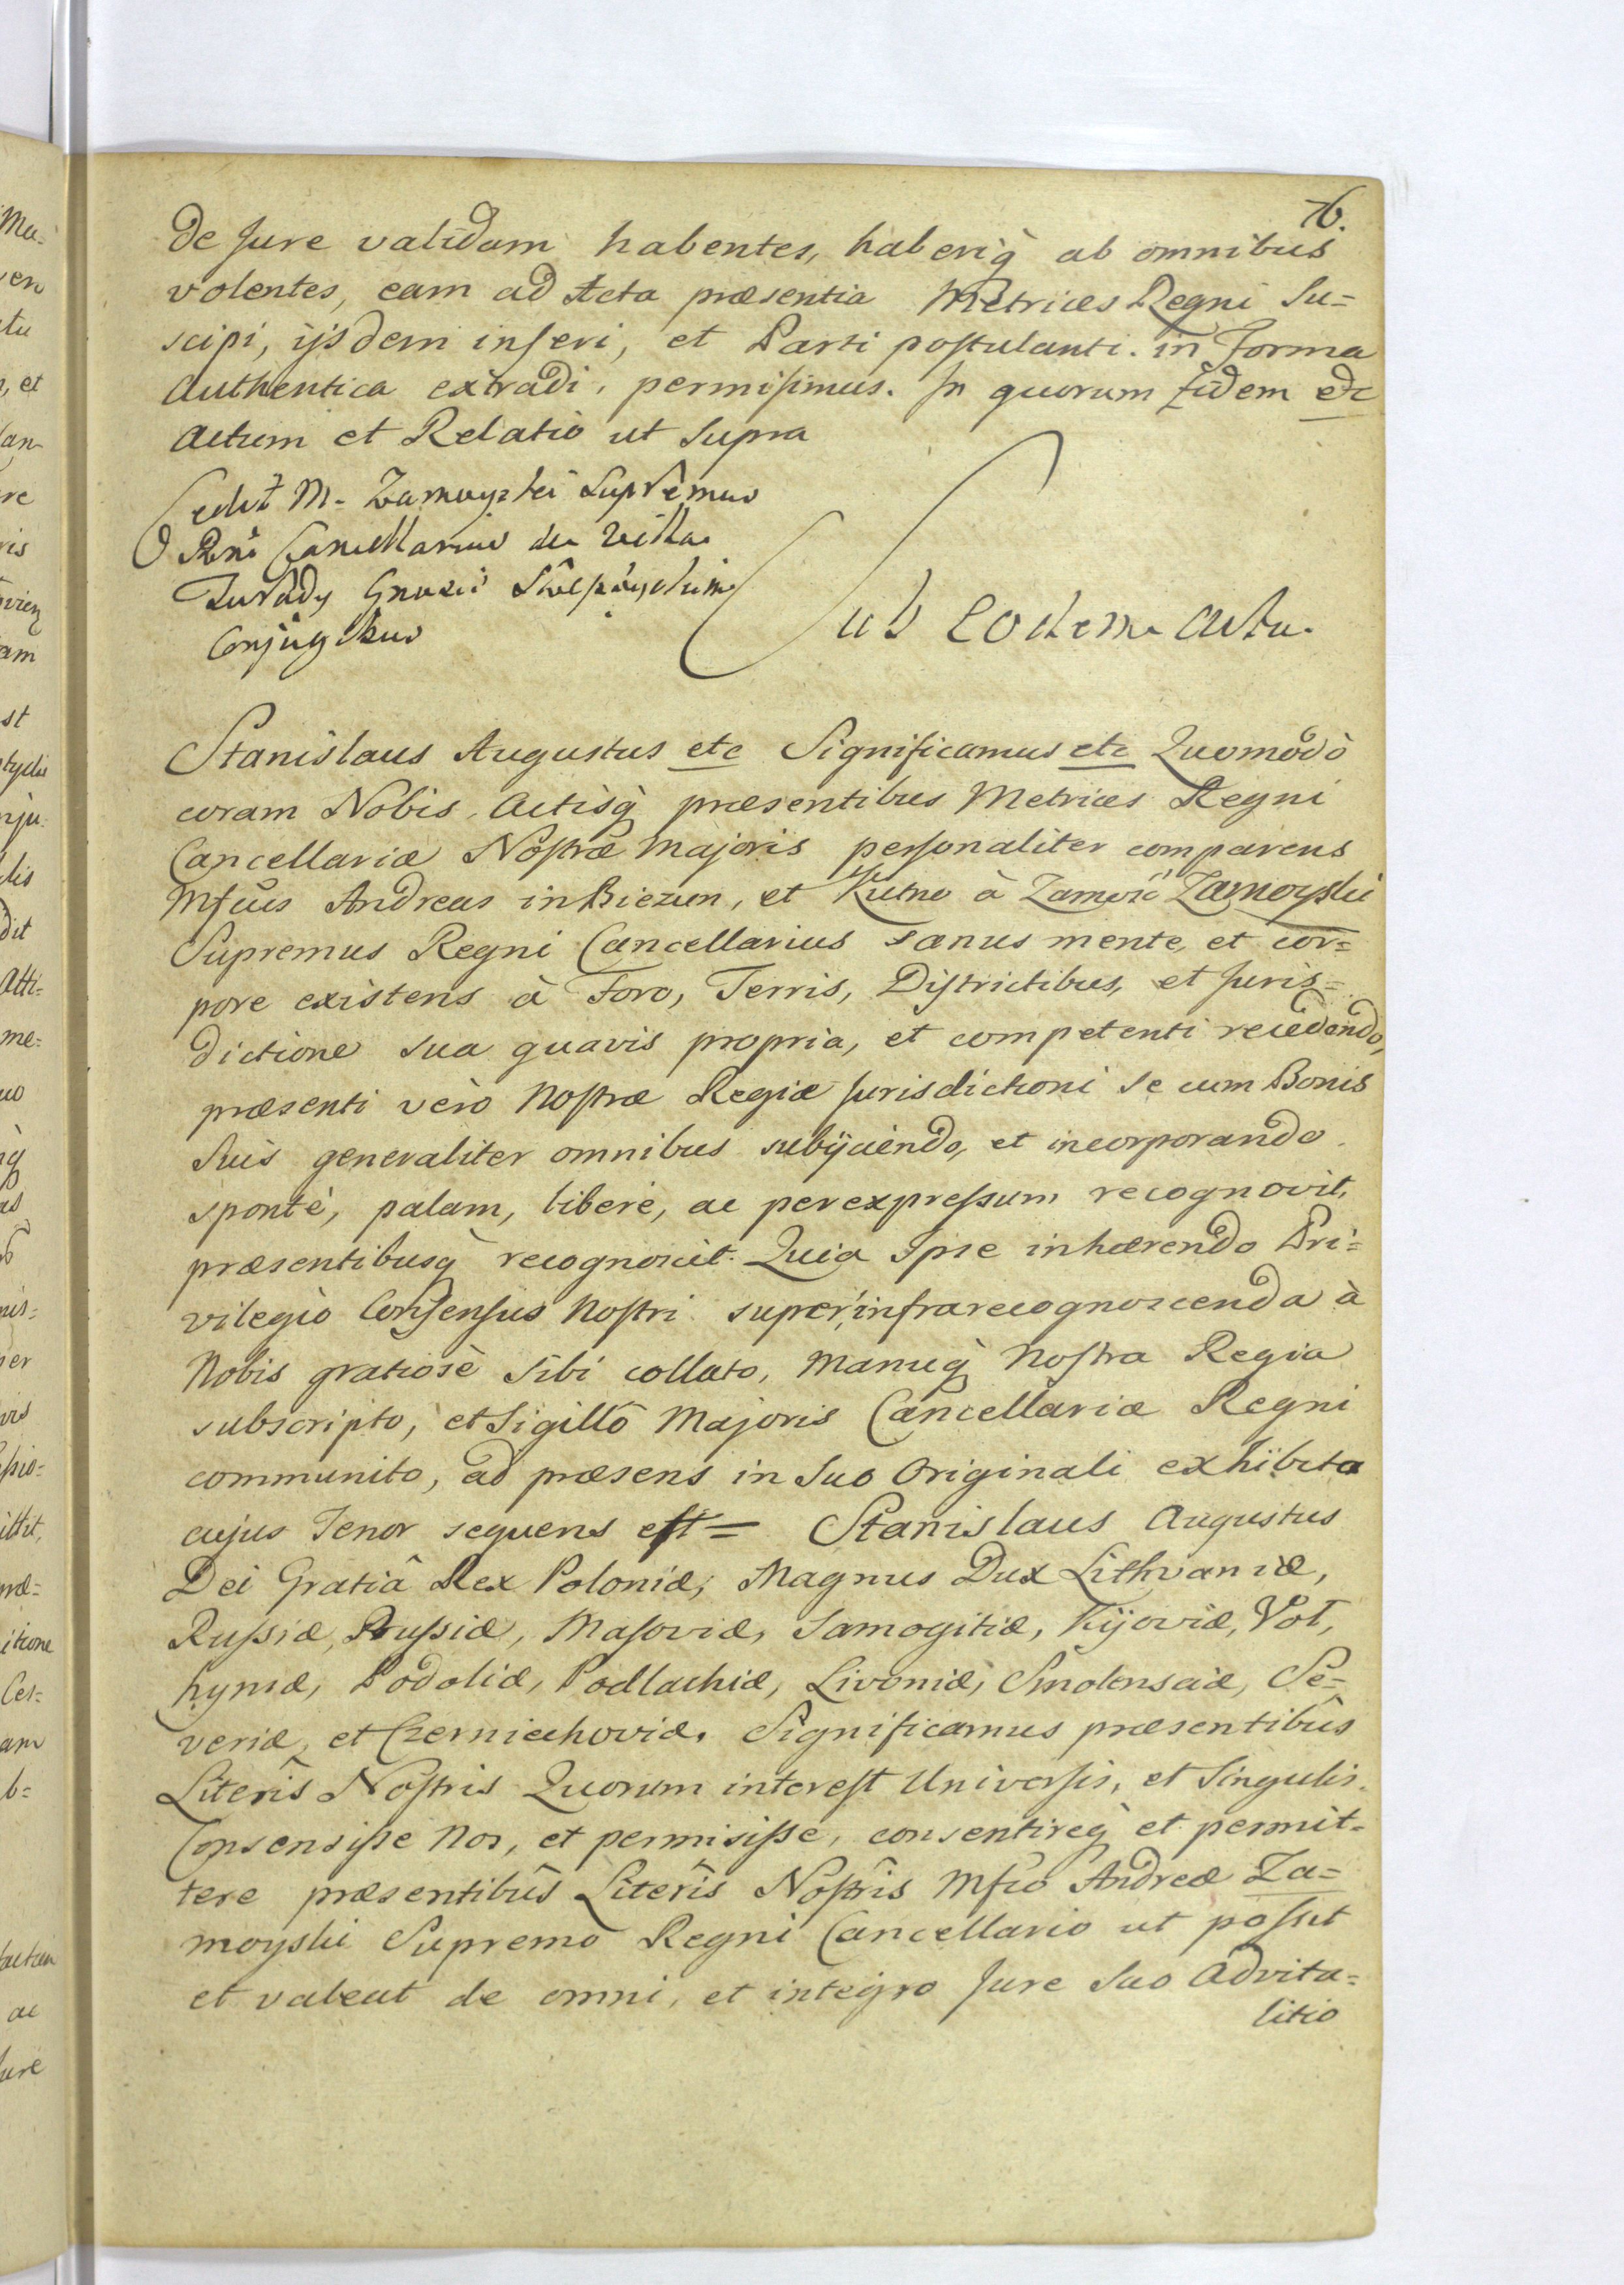 76.
de Jure validam habentes, haberiq̀ ab omnibus
volentes, eam ad Acta præsentia Metrices Regni Su=
scipi, ijsdem inseri, et Parti postulanti in Forma
Authentica extradi, permisimus. In quorum Fidem etc
Actum et Relatio ut Supra
Cedit M. Zamoyski Supremus
Rni Cancellarius de Villa
Zurady Gnosis
Conjugibus
Sub eodem actu.
Stanislaus Augustus etc Significamus etc Quomodò
coram Nobis, Actisq̀ præsentibus Metrices Regni
Cancellariæ Nostræ Majoris personaliter comparens
Mfcus Andreas in Biezun, et Kutno à Zamość Zamoyski
Supremus Regni Cancellarius sanus mente, et cor=
pore existens à Foro, Terris, Districtibus, et Juris=
dictione sua quavis propria, et competenti recedendo,
præsenti verò Nostræ Regiæ Jurisdictioni se cum Bonis
Suis generaliter omnibus subijciendo, et incorporando
sponte, palam, liberè, ac per expressum recognovit,
præsentibusq̀ recognoscit. Quia Ipse inhærendo Pri=
vilegio Consensus Nostri super infrarecognoscenda à
Nobis gratiosè Sibi collato, Manuq̀ Nostra Regia
subscripto, et Sigillô Majoris Cancellariæ Regni
communito, ad præsens in Suo Originali exhibita
cujus Tenor sequens est = Stanislaus Augustus
Dei Gratiâ Rex Poloniæ, Magnus Dux Lithvaniæ,
Russiæ, Prussiæ, Masoviæ, Samogitiæ, Kijoviæ, Vol,
hyniæ, Podoliæ, Podlachiæ, Livoniæ, Smolensciæ, Se=
veriæ, et Czerniechoviæ. Significamus præsentibûs
Literîs Nostris Quorum interest Universis, et Singulis.
Consensisse Nos, et permisisse, consentireq̀ et permit=
tere præsentibûs Literîs Nostrîs Mfco Andreæ Za=
moyski Supremo Regni Cancellario ut possit
et valeat de omni, et integro Jure Suo Advita=
litio